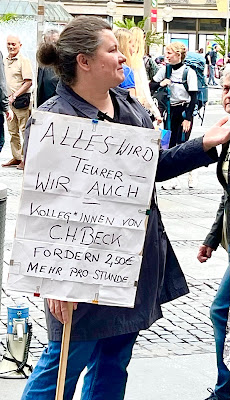 ALLES WIRD
TEURER —
WIR AUCH —
KOLLEG*INNEN VON
C.H.BECK
FORDERN 2,50€
MEHR PRO STUNDE